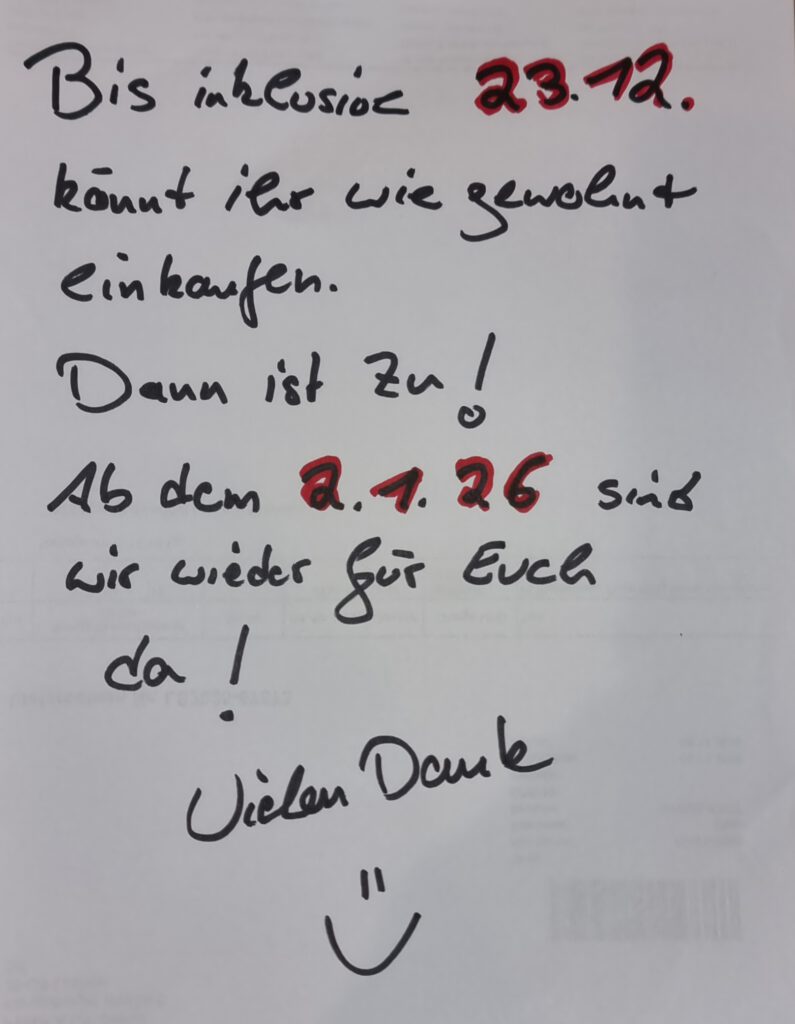 Bis inklusive 23.12.
könnt ihr wie gewohnt
einkaufen.
Dann ist zu!
Ab dem 2.1.26 sind
wir wieder für Euch
da!
Vielen Dank